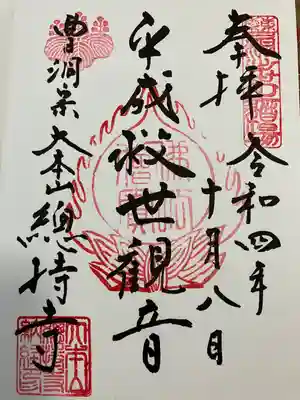 奉拝
令和四年
十月八日
平成救世観音
曹洞宗大本山總持寺